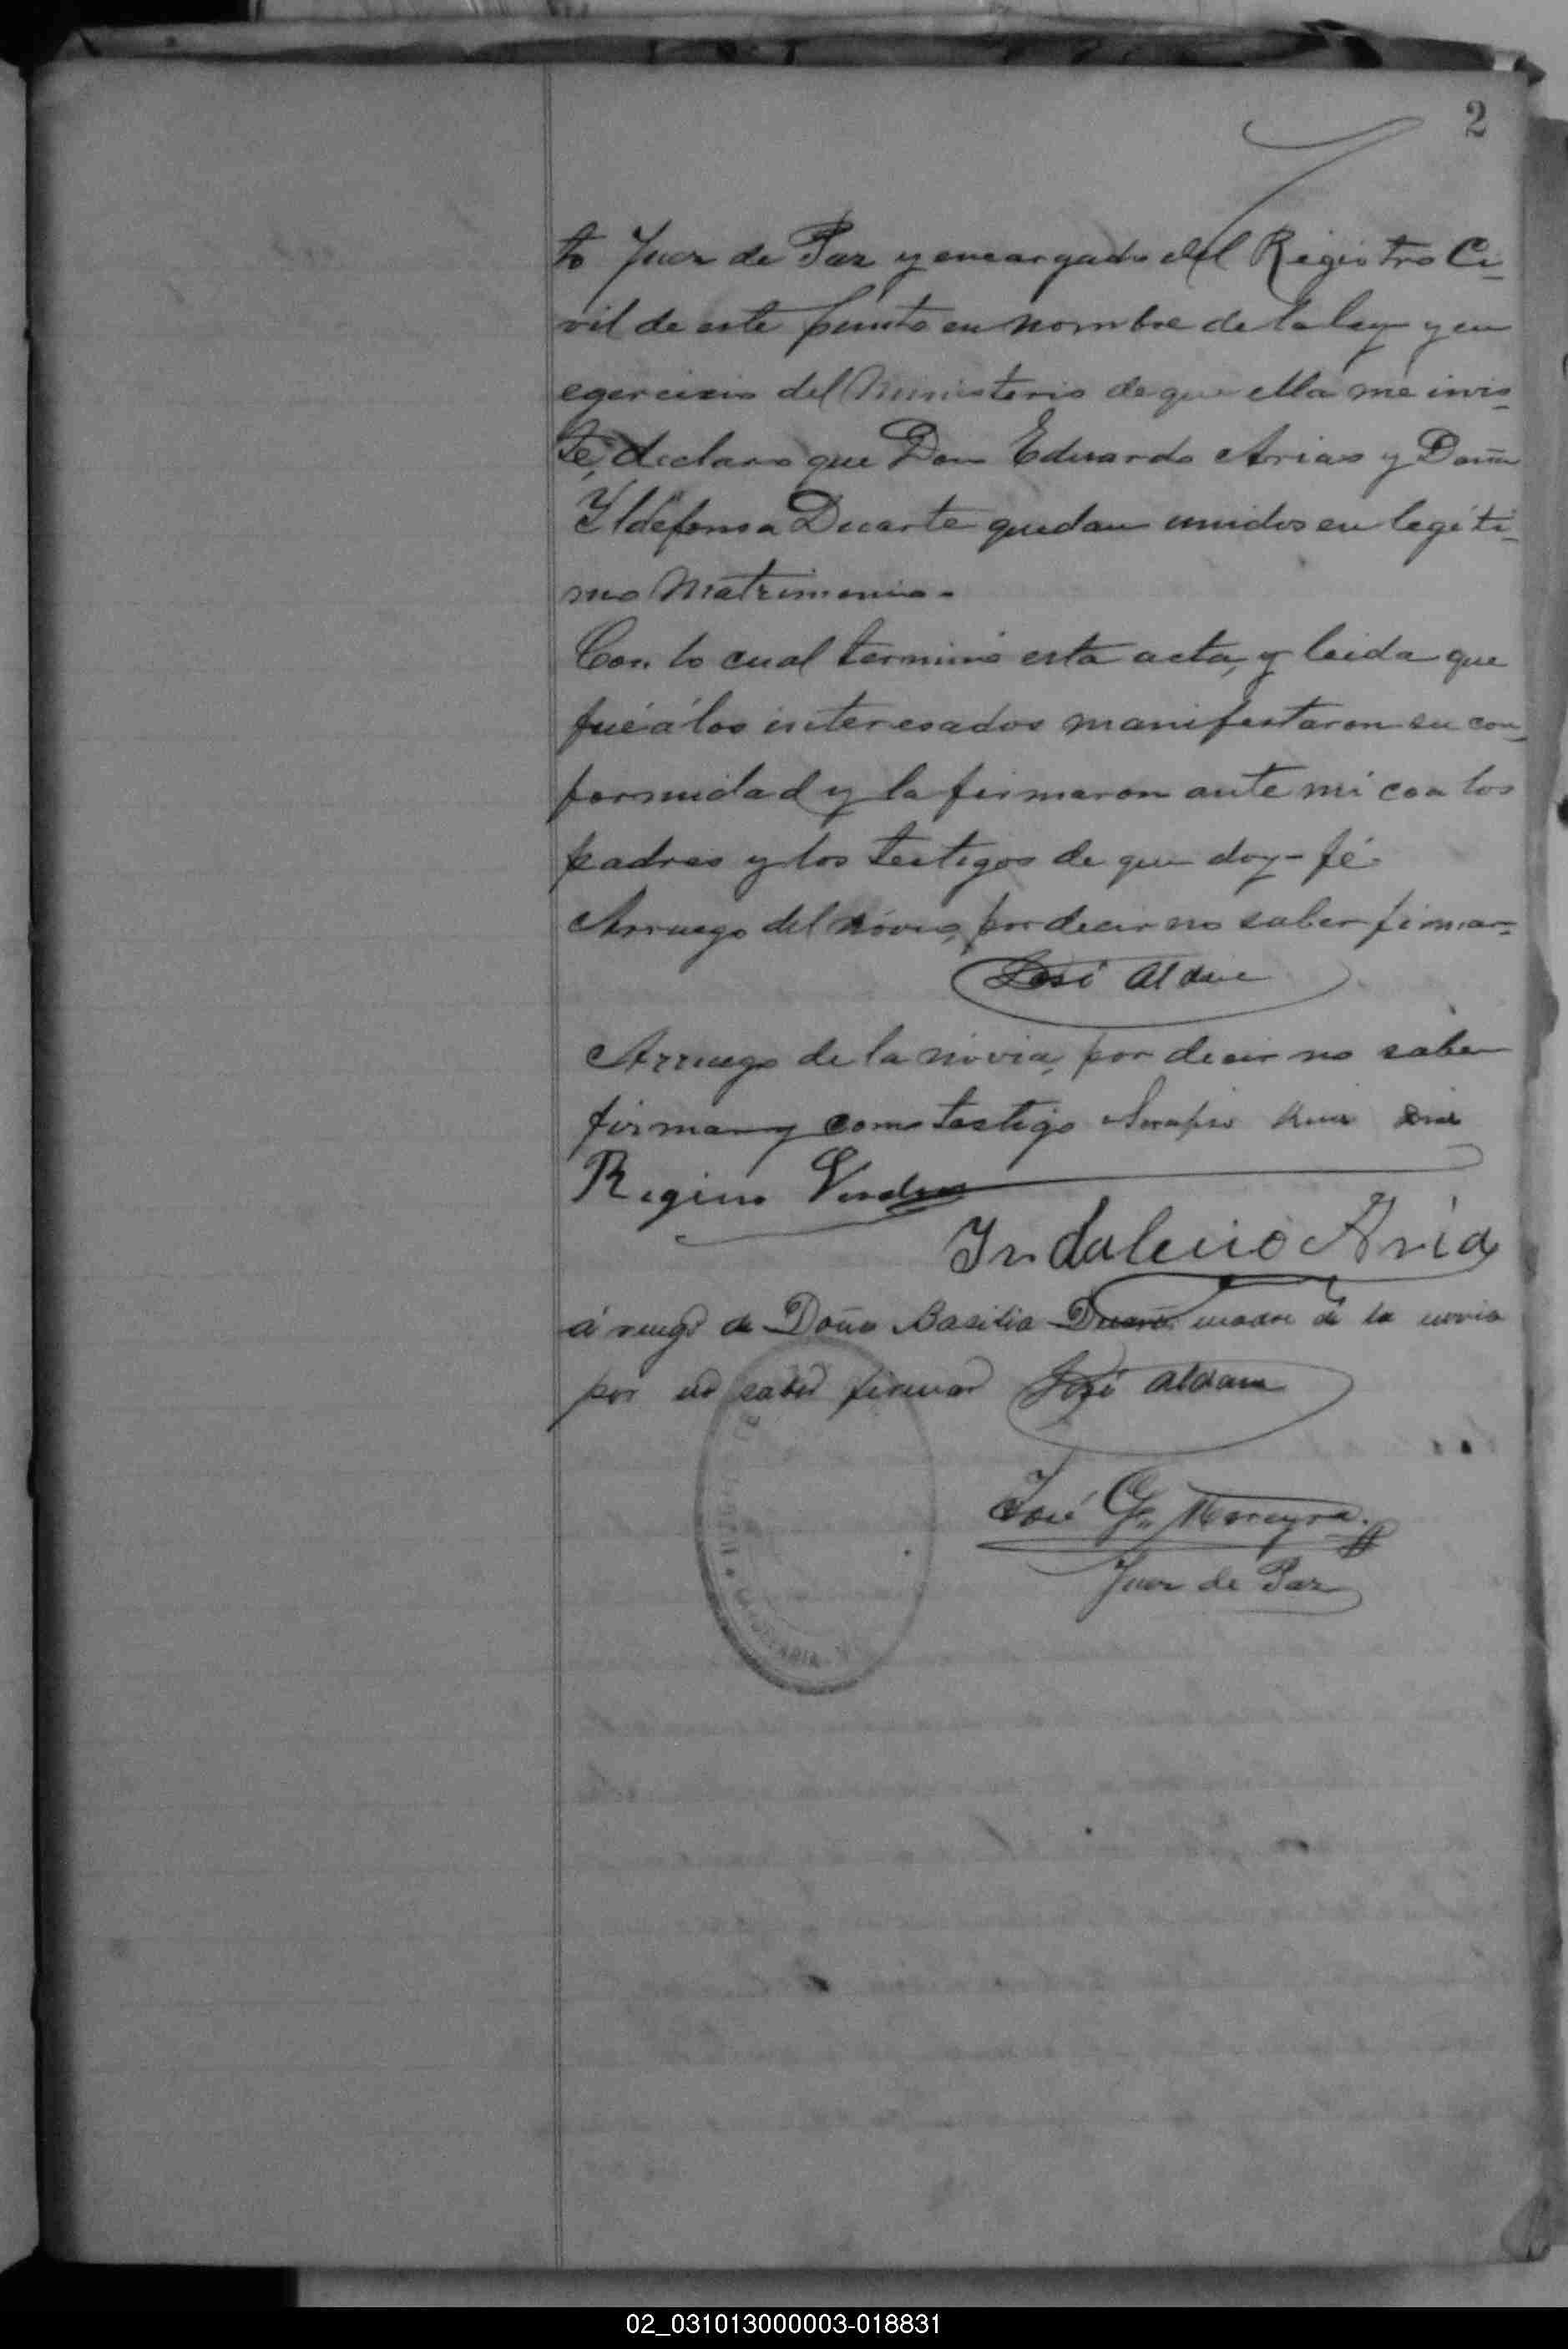 2
to Juez de Paz y encargado del Registro Ci-
vil de este punto en nombre de la ley y en
egercicio del Ministerio de que ella me invis-
te, declaro que Don Eduardo Arias y Doña
Yldefonsa Duarte quedan unidos en legíti-
mo Matrimonio.
Con lo cual terminó esta acta, y leida que
fué á los interesados manifestaron su con-
formidad y la firmaron ante mi con los
padres y los testigos de que doy fé.
Arruego del novio, por decir no saber firmar-
José Aldao
Arruego de la novia, por decir no saber
firmar y como testigo Serapio
Regino
Indalecio Aria
á ruego de Doña Basilia madre de la novia
por no saber firmar José
José G. Moreyra
Juez de Paz
02_031013000003-018831